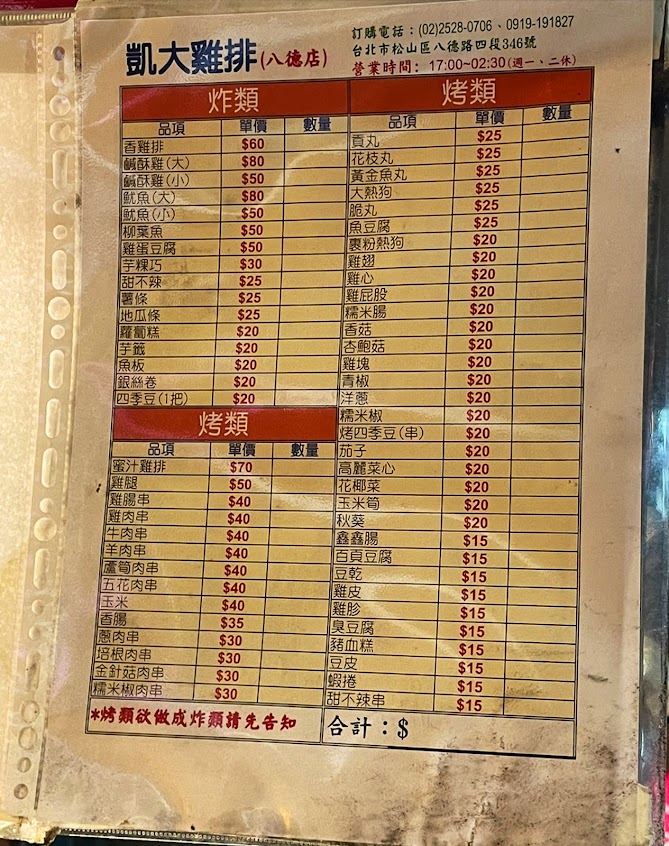 凱大雞排(八德店)
訂購電話：(02)2528-0706、0919-191827
台北市松山區八德路四段346號
營業時間：17:00~02:30(週一、二休)
炸類
品項 單價 數量
香雞排 $60
鹹酥雞(大) $80
鹹酥雞(小) $50
魷魚(大) $80
魷魚(小) $50
柳葉魚 $50
雞蛋豆腐 $50
芋粿巧 $30
甜不辣 $25
薯條 $25
地瓜條 $25
蘿蔔糕 $20
芋籤 $20
魚板 $20
銀絲卷 $20
四季豆(1把) $20
烤類
品項 單價 數量
蜜汁雞排 $70
雞腿 $50
雞腸串 $40
雞肉串 $40
牛肉串 $40
羊肉串 $40
蘆筍肉串 $40
五花肉串 $40
玉米 $40
香腸 $35
蔥肉串 $30
培根肉串 $30
金針菇肉串 $30
糯米椒肉串 $30
*烤類欲做成炸類請先告知
烤類
品項 單價 數量
貢丸 $25
花枝丸 $25
黃金魚丸 $25
大熱狗 $25
脆丸 $25
魚豆腐 $25
裹粉熱狗 $20
雞翅 $20
雞心 $20
雞屁股 $20
糯米腸 $20
香菇 $20
杏鮑菇 $20
雞塊 $20
青椒 $20
洋蔥 $20
糯米椒 $20
烤四季豆(串) $20
茄子 $20
高麗菜心 $20
花椰菜 $20
玉米筍 $20
秋葵 $20
鑫鑫腸 $15
百頁豆腐 $15
豆乾 $15
雞皮 $15
雞胗 $15
臭豆腐 $15
豬血糕 $15
豆皮 $15
蝦捲 $15
甜不辣串 $15
合計：$